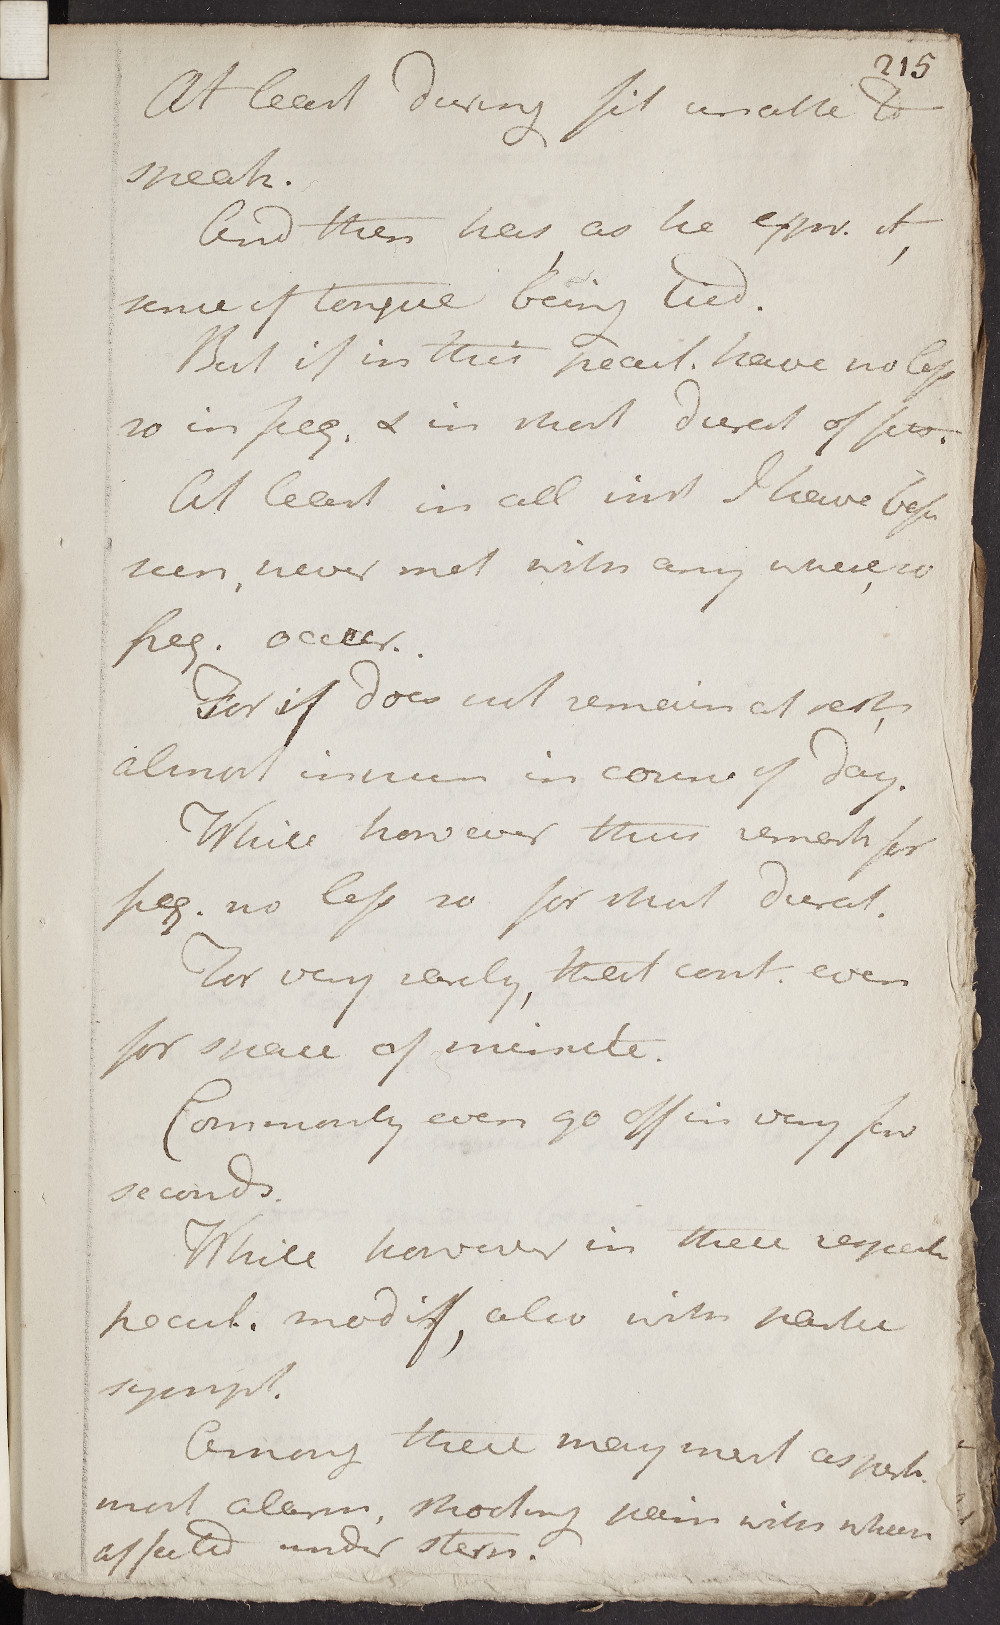 215
At least during fit unable to
speak.
And then has, as he expr. it,
sense of tongue being tied.
But if in this pecul. have no less
so in freq. & in short durat of fits.
At least in all inst I have bef
seen, never met with any where, so
freq. occur.
For if does not remain at rest,
almost innum in course of day.
While however thus remark for
freq. no less so for short durat.
For very rarely, that cont. even
for space of minute.
Commonly even go off in very few
seconds.
While however in these respects
pecul. modif, also with partic
sympt.
Among these may ment as perh.
most alarm, shooting pain with when
affected under stern.